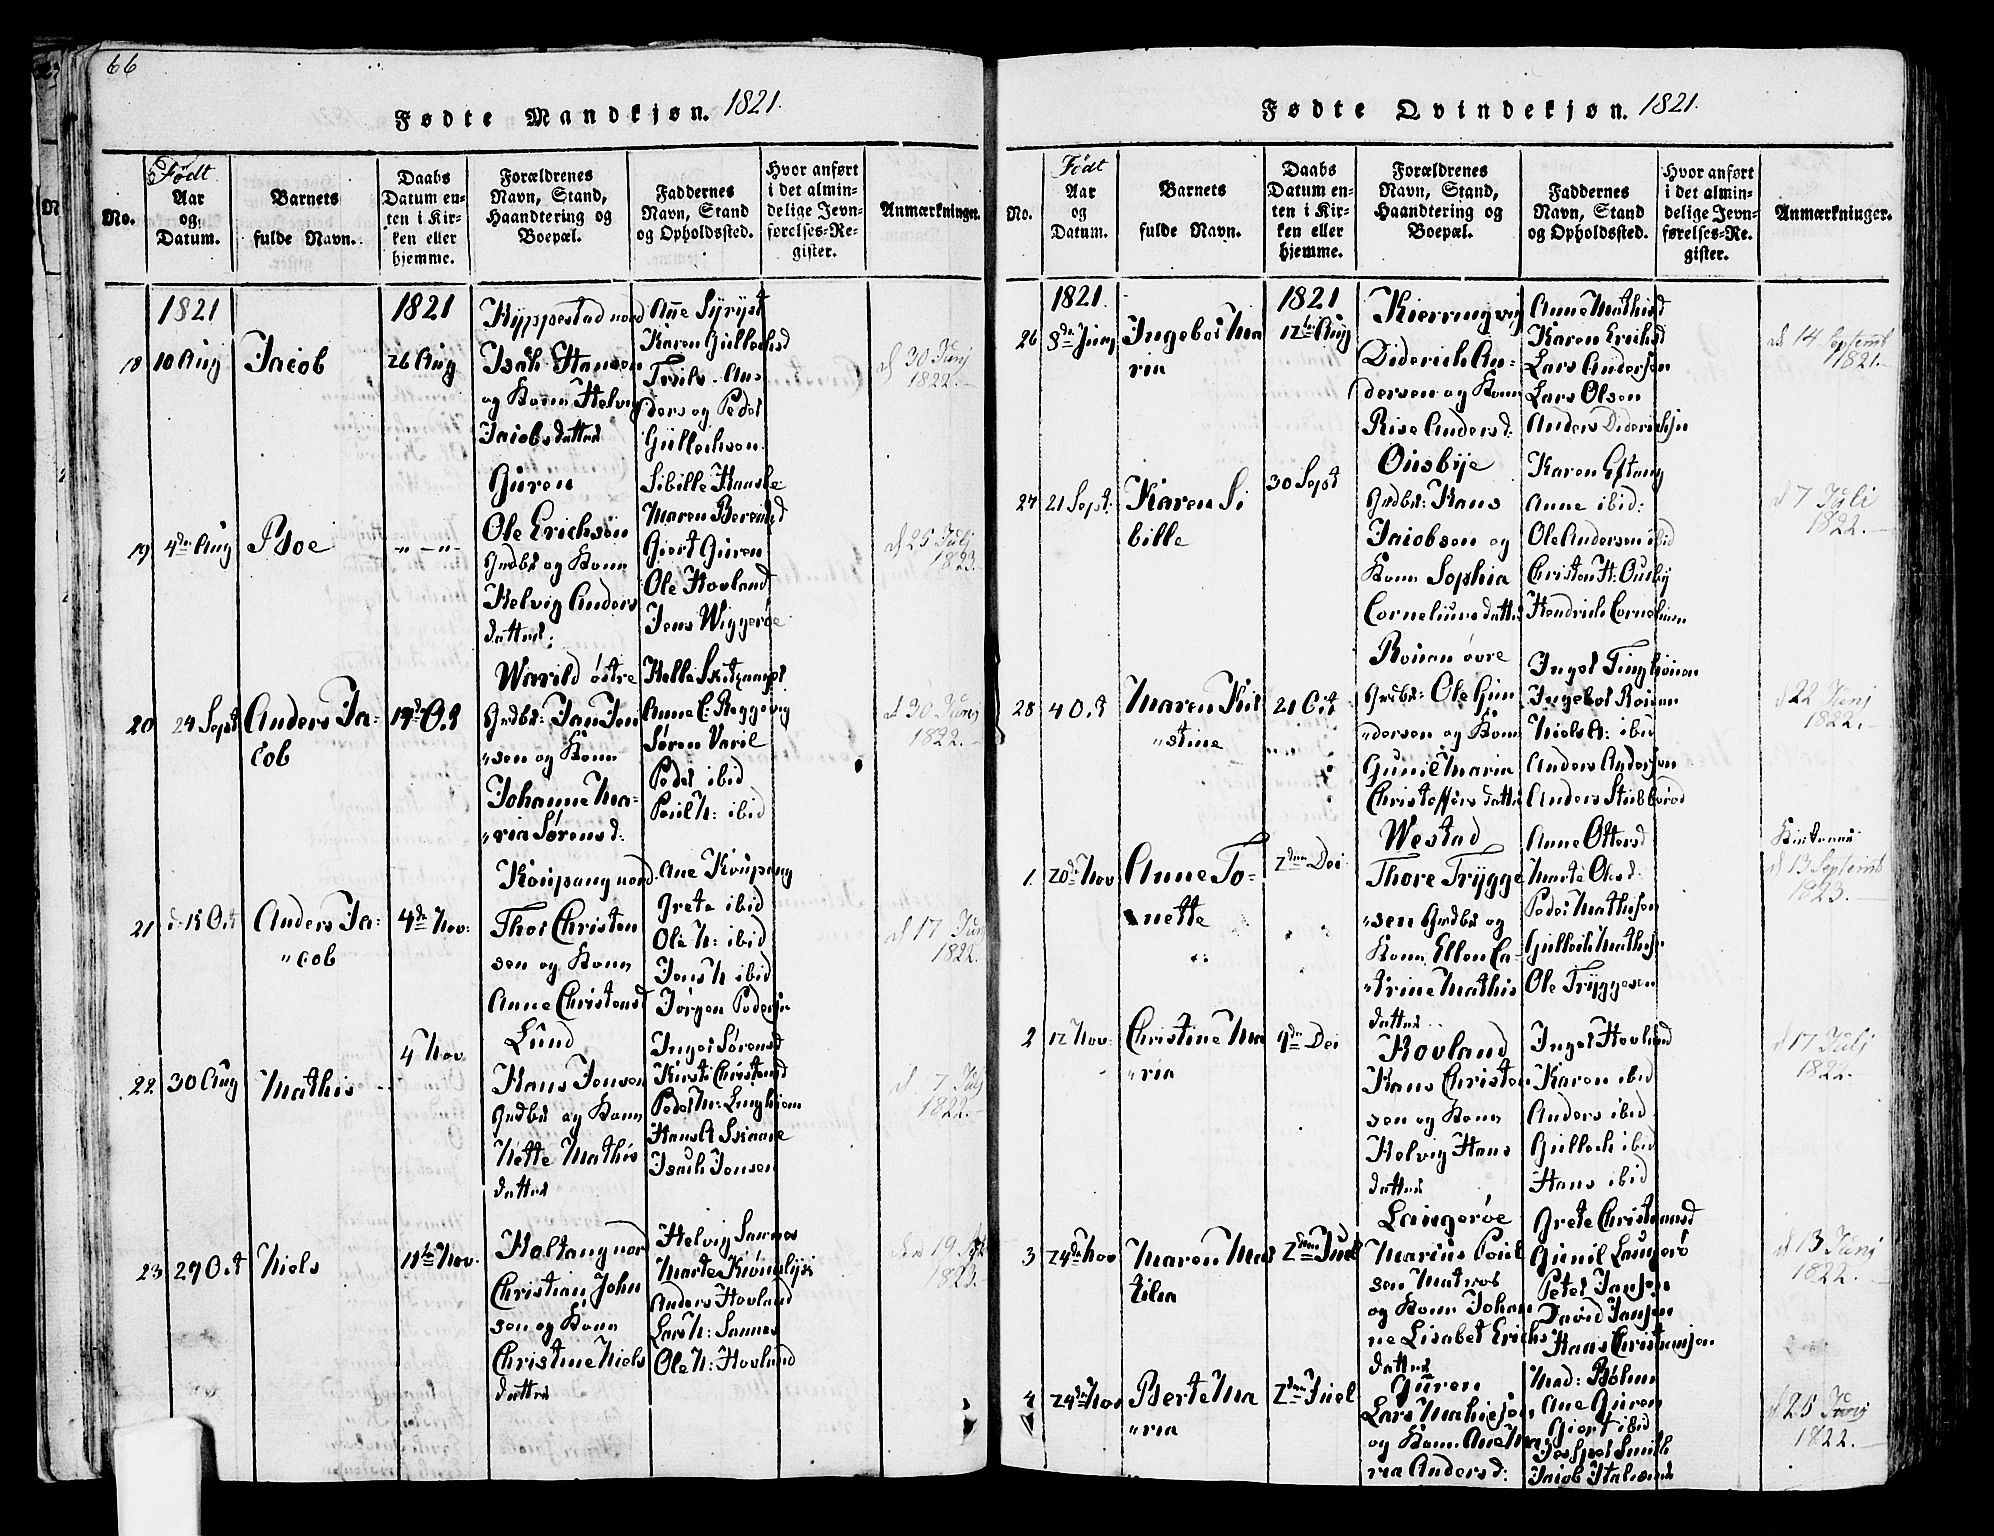 66
Fødte Mandkjøn. 1821.
No.
Født
Aar
og
Datum.
Barnets
fulde Navn.
Daabs
Datum en-
ten i Kir-
ken eller
hjemme.
Forældrenes
Navn, Stand,
Haandtering og
Boepæl.
Faddernes
Navn, Stand
og Opholdssted.
Hvor anført
i det almin-
delige Jevn-
førelses-Re-
gister.
Anmærkninger.
1821
18
10 Aug
Jacob
1821
26 Aug
Kyppestad nord
Isak Hansen
og Kone Helvig
Jacobsdatter
Karen Gullechsd
Troels An-
ders og Peder
Gullechsen
d 30 Junj
1822.
19
4de Aug
Boe
" - "
Guren
Ole Erichsen
og Kone
Helvig Anders
datter:
Sibille Hansbe
Maren Berentsd
Giert Guren
Ole Hovland
Jens Wiggerøe
d 25 Julj
1823.
20
24 Sept
Anders Ja-
cob
14de Oct
Warild østre
Jan Jen
"sen og Kone
Johanne Ma-
"ria Sørensd:
Helle
Anne C: Reggevig
Søren Varil
Peder ibid
Poul N: ibid
d 30 Junj
1822.
21
d. 15 Oct
Anders Ja-
"cob
4de Nov:
Koupang nord.
Thor Christen
sen og Kone
Anne Christensd
Ane Koupang
Grete ibid
Ole N: ibid
Jens N ibid
Jørgen Pedersen
d 17 Junj
1822.
22
30 Aug
Mathis
4 Nov
Lund
Hans Jensen
og Kone
Nette Mathis
datter
Inger Sørensd
Kirsti Christensd
Peder N: Linghiem
Hans A
Isach Jensen
d. 7 Julj
1822.
23
29 Oct
Niels
11te Nov.
Holtang nord
Christian John
sen og Kone
Christine Niels
datter
Helvig Sannes
Marte
Anders Hovland
Lars N: Sannes
Ole N: Hovland
den 19
1823.
Fødte Qvindekjøn. 1821.
No.
Født
Aar
og
Datum.
Barnets
fulde Navn.
Daabs
Datum en-
ten i Kir-
ken eller
hjemme.
Forældrenes
Navn, Stand,
Haandtering og
Boepæl.
Faddernes
Navn, Stand
og Opholdssted.
Hvor anført
i det almin-
delige Jevn-
førelses-Re-
gister.
Anmærkninger.
1821.
26
8de Juny
Ingebor Ma
ria
1821
12te Aug
Kierringvig
Diderich An-
dersen og Kone
Rise Andersd:
Anne Mathisd
Karen Erichsd
Lars Andersen
Lars Olsen
Anders Diderichsen
d 14 Septemb
1821.
27
21 Sept:
Karen Si
bille
30 Sept
Ousbye
Hans
Jacobsen og
Kone Sophia
Corneliusdatter
Karen Eftang
Anne ibid:
Ole Andersen ibid
Christen H: Ousby
Hendrich Corneliusen
d 7 Juli
1822.
28
4 Oct
Maren Kir
"stine
21 Oct
Roinan øvre
Ole Gun
"dersen og Kone
Gunil Maria
Christoffersdatter
Inger
Ingebor Roinan
Niels A: ibid
Anders Andersen
Anders Stubberød
d 22 Junj
1822.
1.
20de Nov
Anne To-
nette
2den Dec
Westad
Thore Trygge
"sen og
Kone Ellen Ca-
"trine Mathis
datter
Anne Ottersd
Marte Olsd:
Peder Mathisen
Gullech Mathisen
Ole Tryggesen
d 13 Septemb
1823.
2
12 Nov:
Christine Ma
"ria
9de Dec
Hovland
Hans Christen
sen og Kone
Helvig Hans
datter
Inger Hovland
Karen ibid
Anders ibid
Gullech ibid
Hans ibid
d 17 Julj
1822.
3
24de Nov
Maren Ma
tilia
2den Juel
Langerøe
Marius Poul
sen Matros
og Kone Johan
ne Lisabet Erichs
datter
Grete Christiansd
Gunil Langerø
Peter Jansen
David Jansen
Hans Christiansen
d 13 Junj
1822.
4
24de Nov
Berte Ma
"ria
2den Juel
Guren
Lars Mathiesen
og Kone Ane Ma
ria Andersd:
Mad: Bøhm
Ane Guren
Giert ibid
Jesper Smith
Jacob
d 25 Junj
1822.